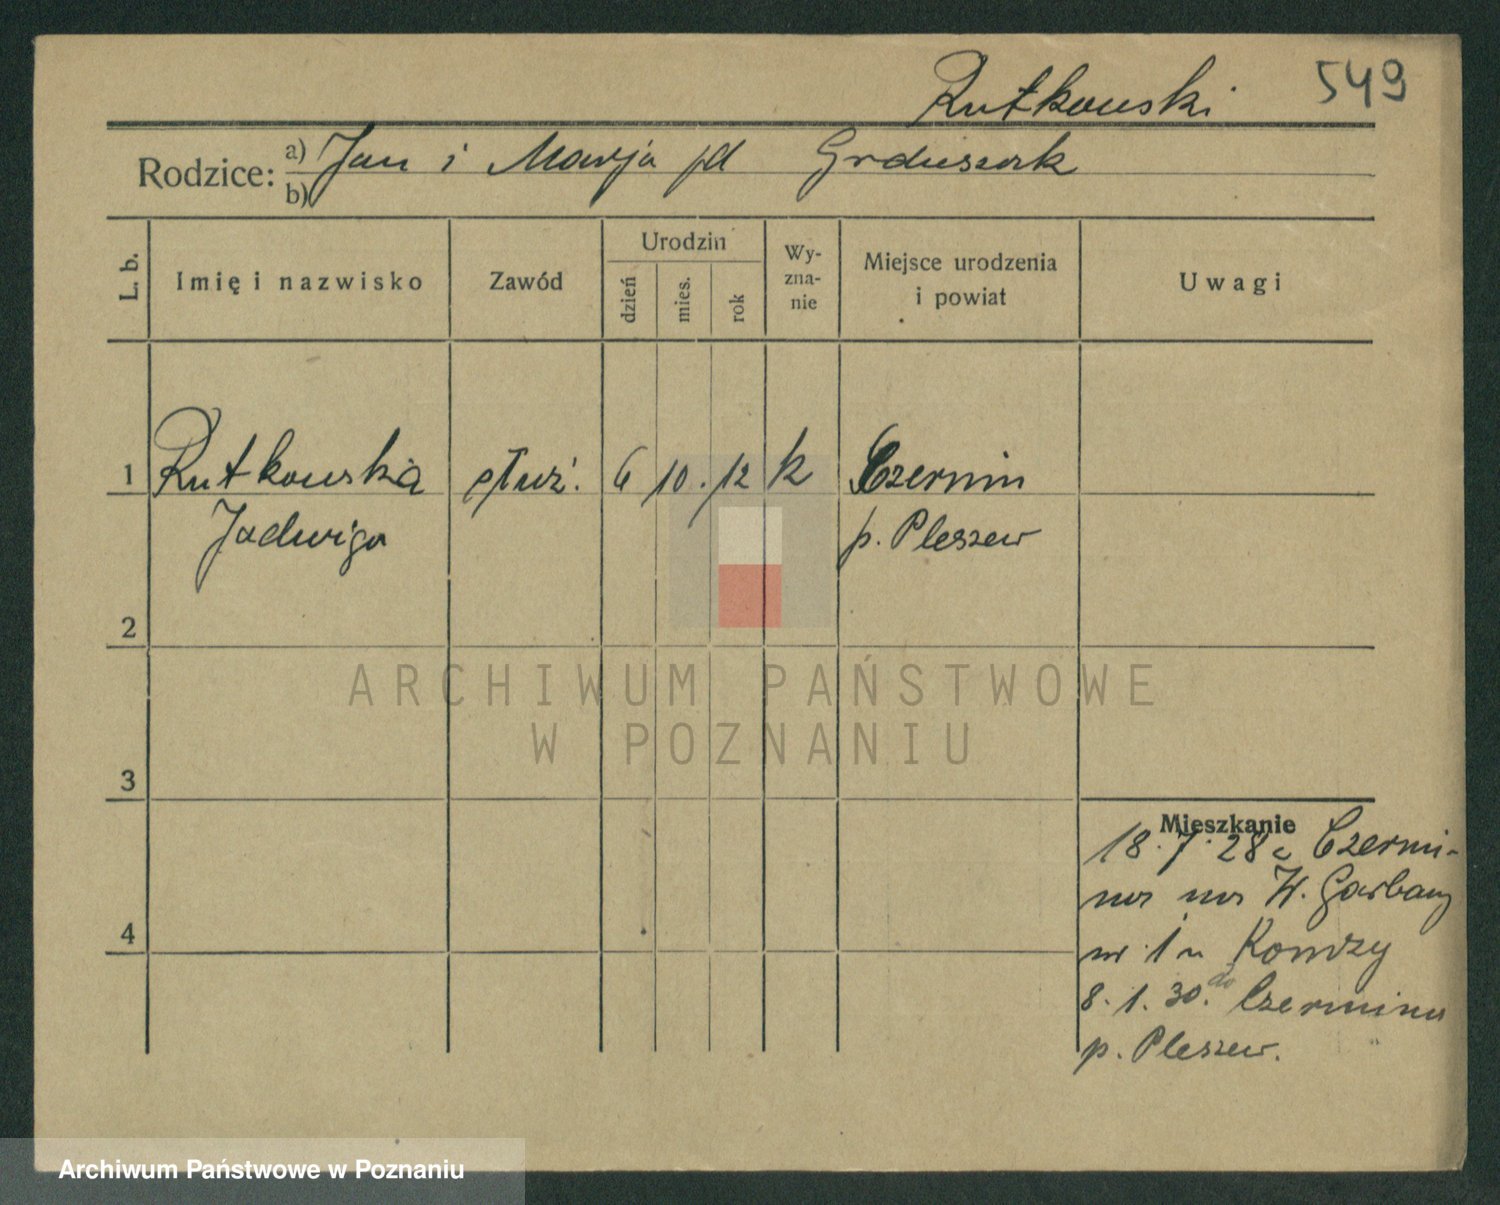 Rutkowski 549
Rodzice: a) Jan i Marja
b)
L. b. Imię i nazwisko Zawód Urodzin dzień mies. rok Wyznanie Miejsce urodzenia i powiat Uwagi
1 Rutkowska służ. 6 10. 12 k Czermin
Jadwiga p. Pleszew
2
3
4
Mieszkanie
18.7.28 z Czermi-
na na W. Garbary
nr 1 u
8.1.30. do Czermina
p. Pleszew.
ARCHIWUM PAŃSTWOWE
W POZNANIU
Archiwum Państwowe w Poznaniu